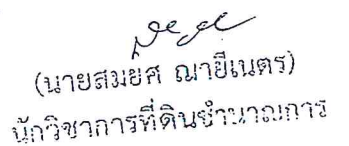 (นายสมยศ ณายีเนตร)
นักวิชาการที่ดินชำนาญการ